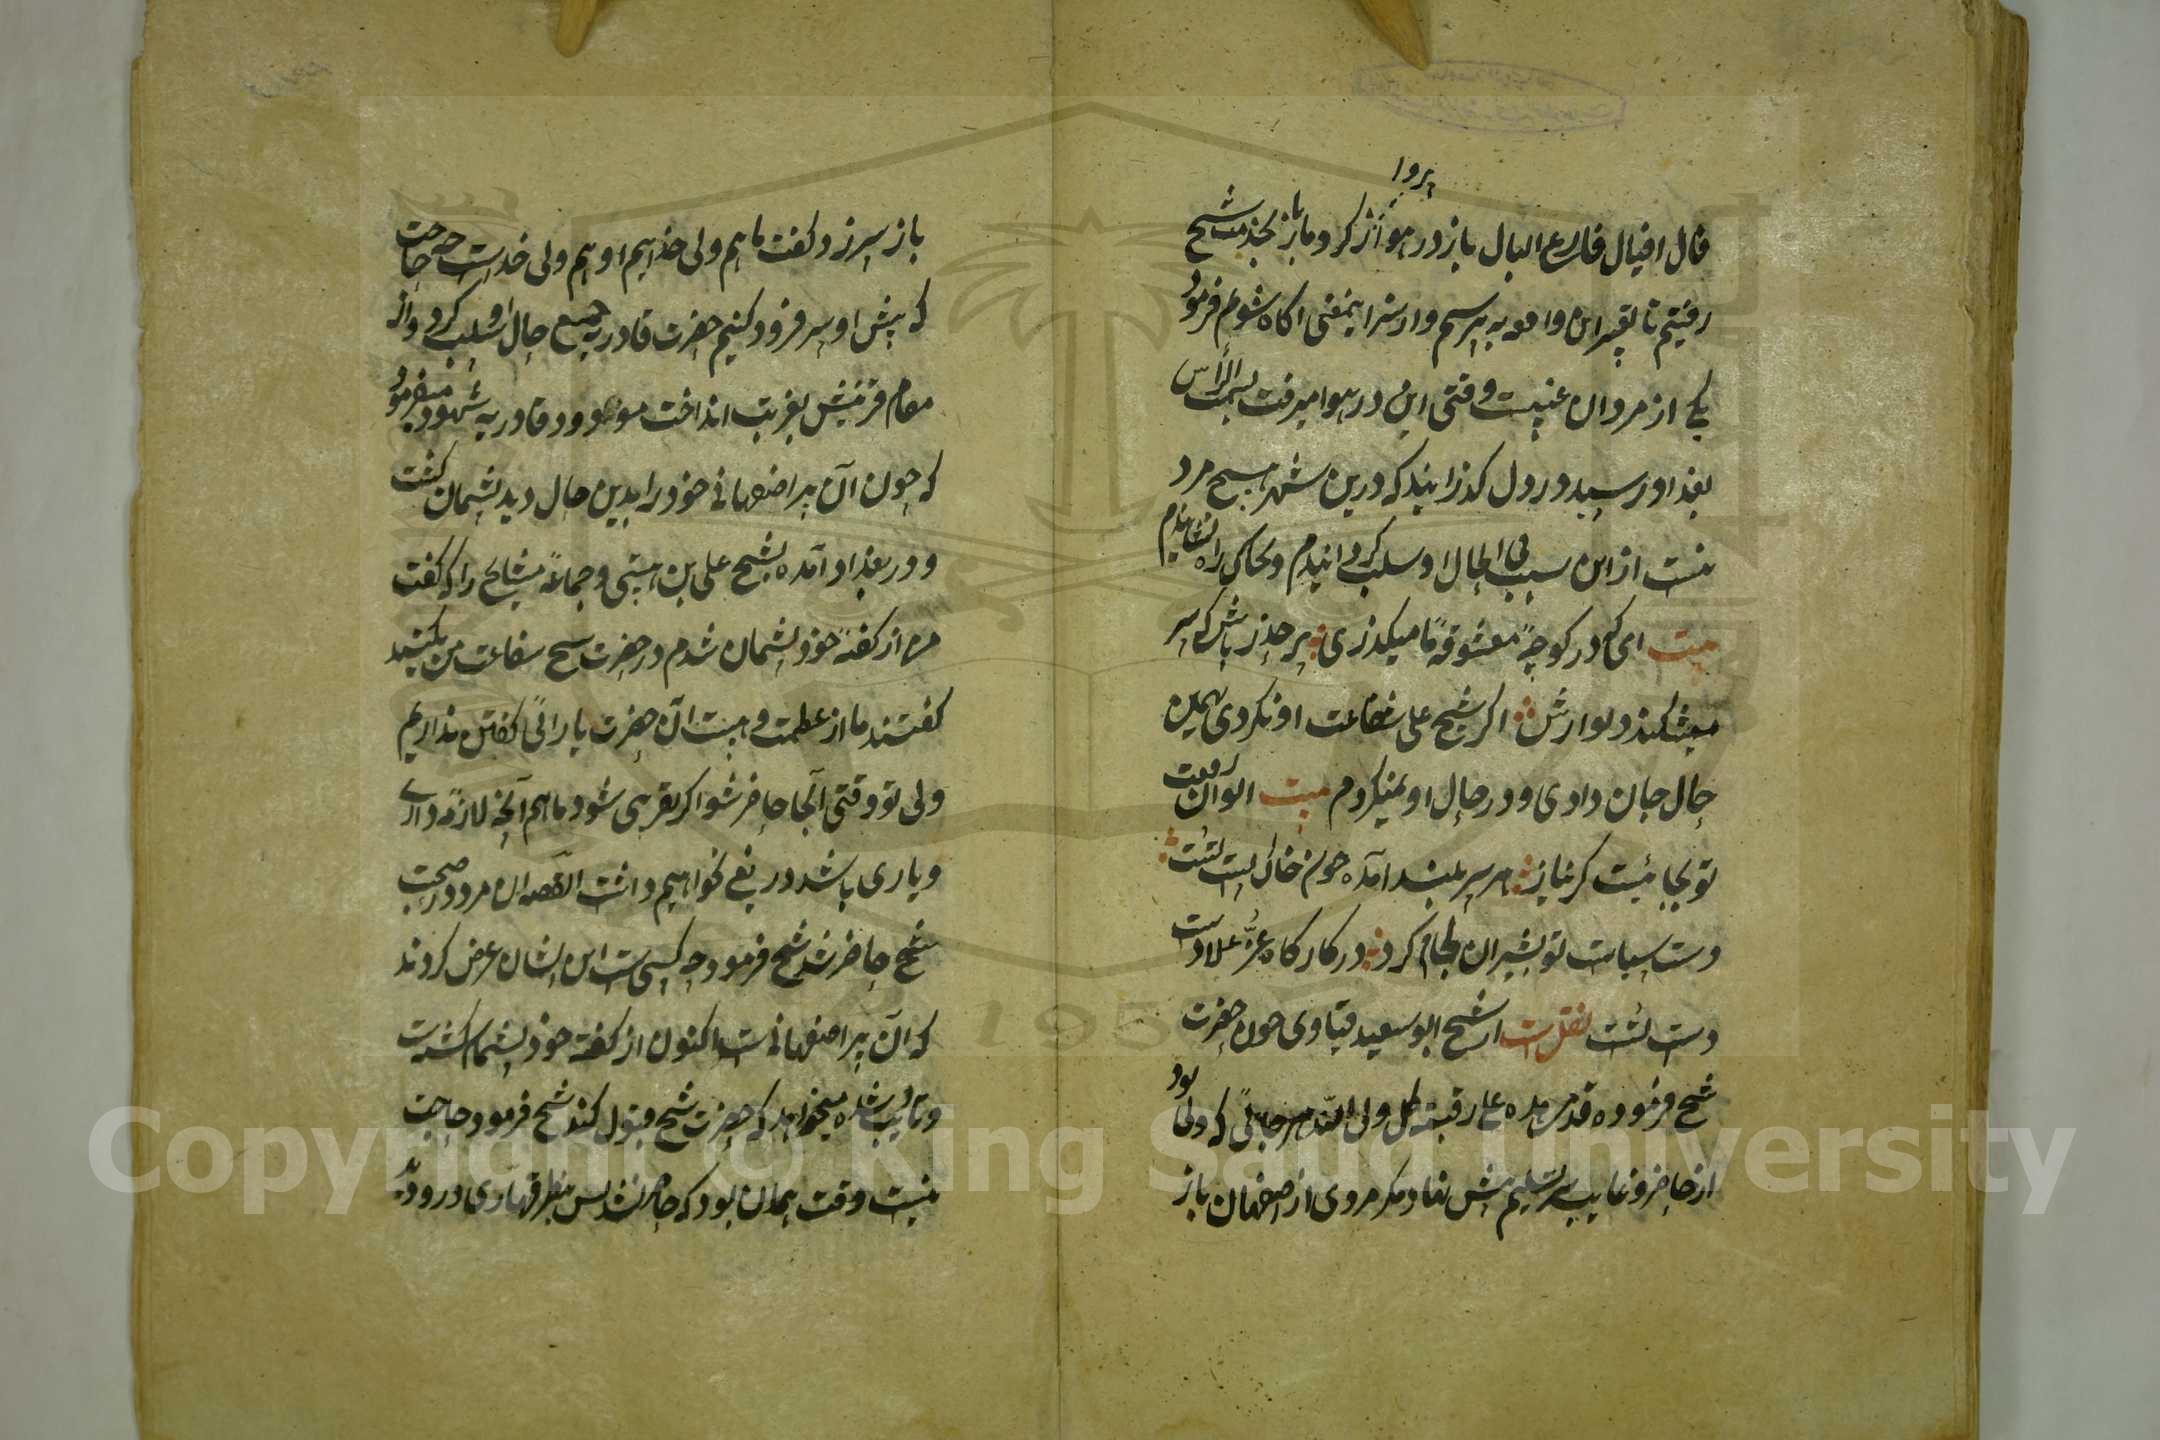 پروا
فال اقبال فارغ البال باز در هوا کرد و ما باز بخدمت شیخ
رفتیم تا تفسیر این واقعه به پرسم و از سر اینمعنی اکاه شوم فرمود
یکی از مردان غیبست وقتی این در هوا میرفت بسمت الراس
بغداد رسید در دل کذرانید که درین شهر هیچ مرد
نیست ازین سبب فی الحال او سلب کردانیدم و بخاک راه نشاندم
بیت ای که در کوچهٔ معشوقهٔ ما میکذری پر حذر باش که سر
میشکند دیوارش اکر شیخ علی شفاعت او نکردی بهمین
حال جان دادی و در حال او نمیکردم بیت ایوان رفعت
تو بجائیست کز نیاز هر سر بلند آمده چون خاک پست تست
دست سیاست تو بشیران لجام کرد در کارکاه عز و علا دست
دست تست نقلست از شیخ ابو سعید قیلوی چون حضرت
شیخ فرموده قدمی هذه علی رقبة کل ولی الله هر جائی که ولی بود
از حاضر و غایب سر تسلیم پیش نهاد مکر مردی از اصفهان باز
باز سر زد و کفت ما هم ولی خدایم او هم ولی خداست چه حاجت
که پیش او سر فرود کنیم حضرت قادریه جمیع حال او سلب کرد و از
مقام قربتش بغربت انداخت
که چون آن پیر اصفهانی خود را بدین حال دید پشیمان کشت
و در بغداد آمده شیخ علی بن هیتی و جماعهٔ مشایخ را که کفت
من از کفتهٔ خود پشیمان شدم در حضرت شیخ شفاعت من بکنید
کفتند ما از عظمت و هیبت آن حضرت یارائی کفتن نداریم
ولی تو وقتی آنجا حاضر شو اکر تقریبی شود ما هم آنچه لازمه داری
و یاری باشد دریغ نخواهیم داشت القصه آن مرد در صحبت
شیخ حاضر شد شیخ فرمود چه کسی ست این ایشان عرض کردند
که آن پیر اصفهانی ست اکنون از کفته خود پشیمان شده است
و تائب شده میخواهد که حضرت شیخ قبول کند شیخ فرمود حاجت
نیست وقت همان بود که حاضر شد پس بنظر قهاری در وی دید
Copyright © King Saud University
195